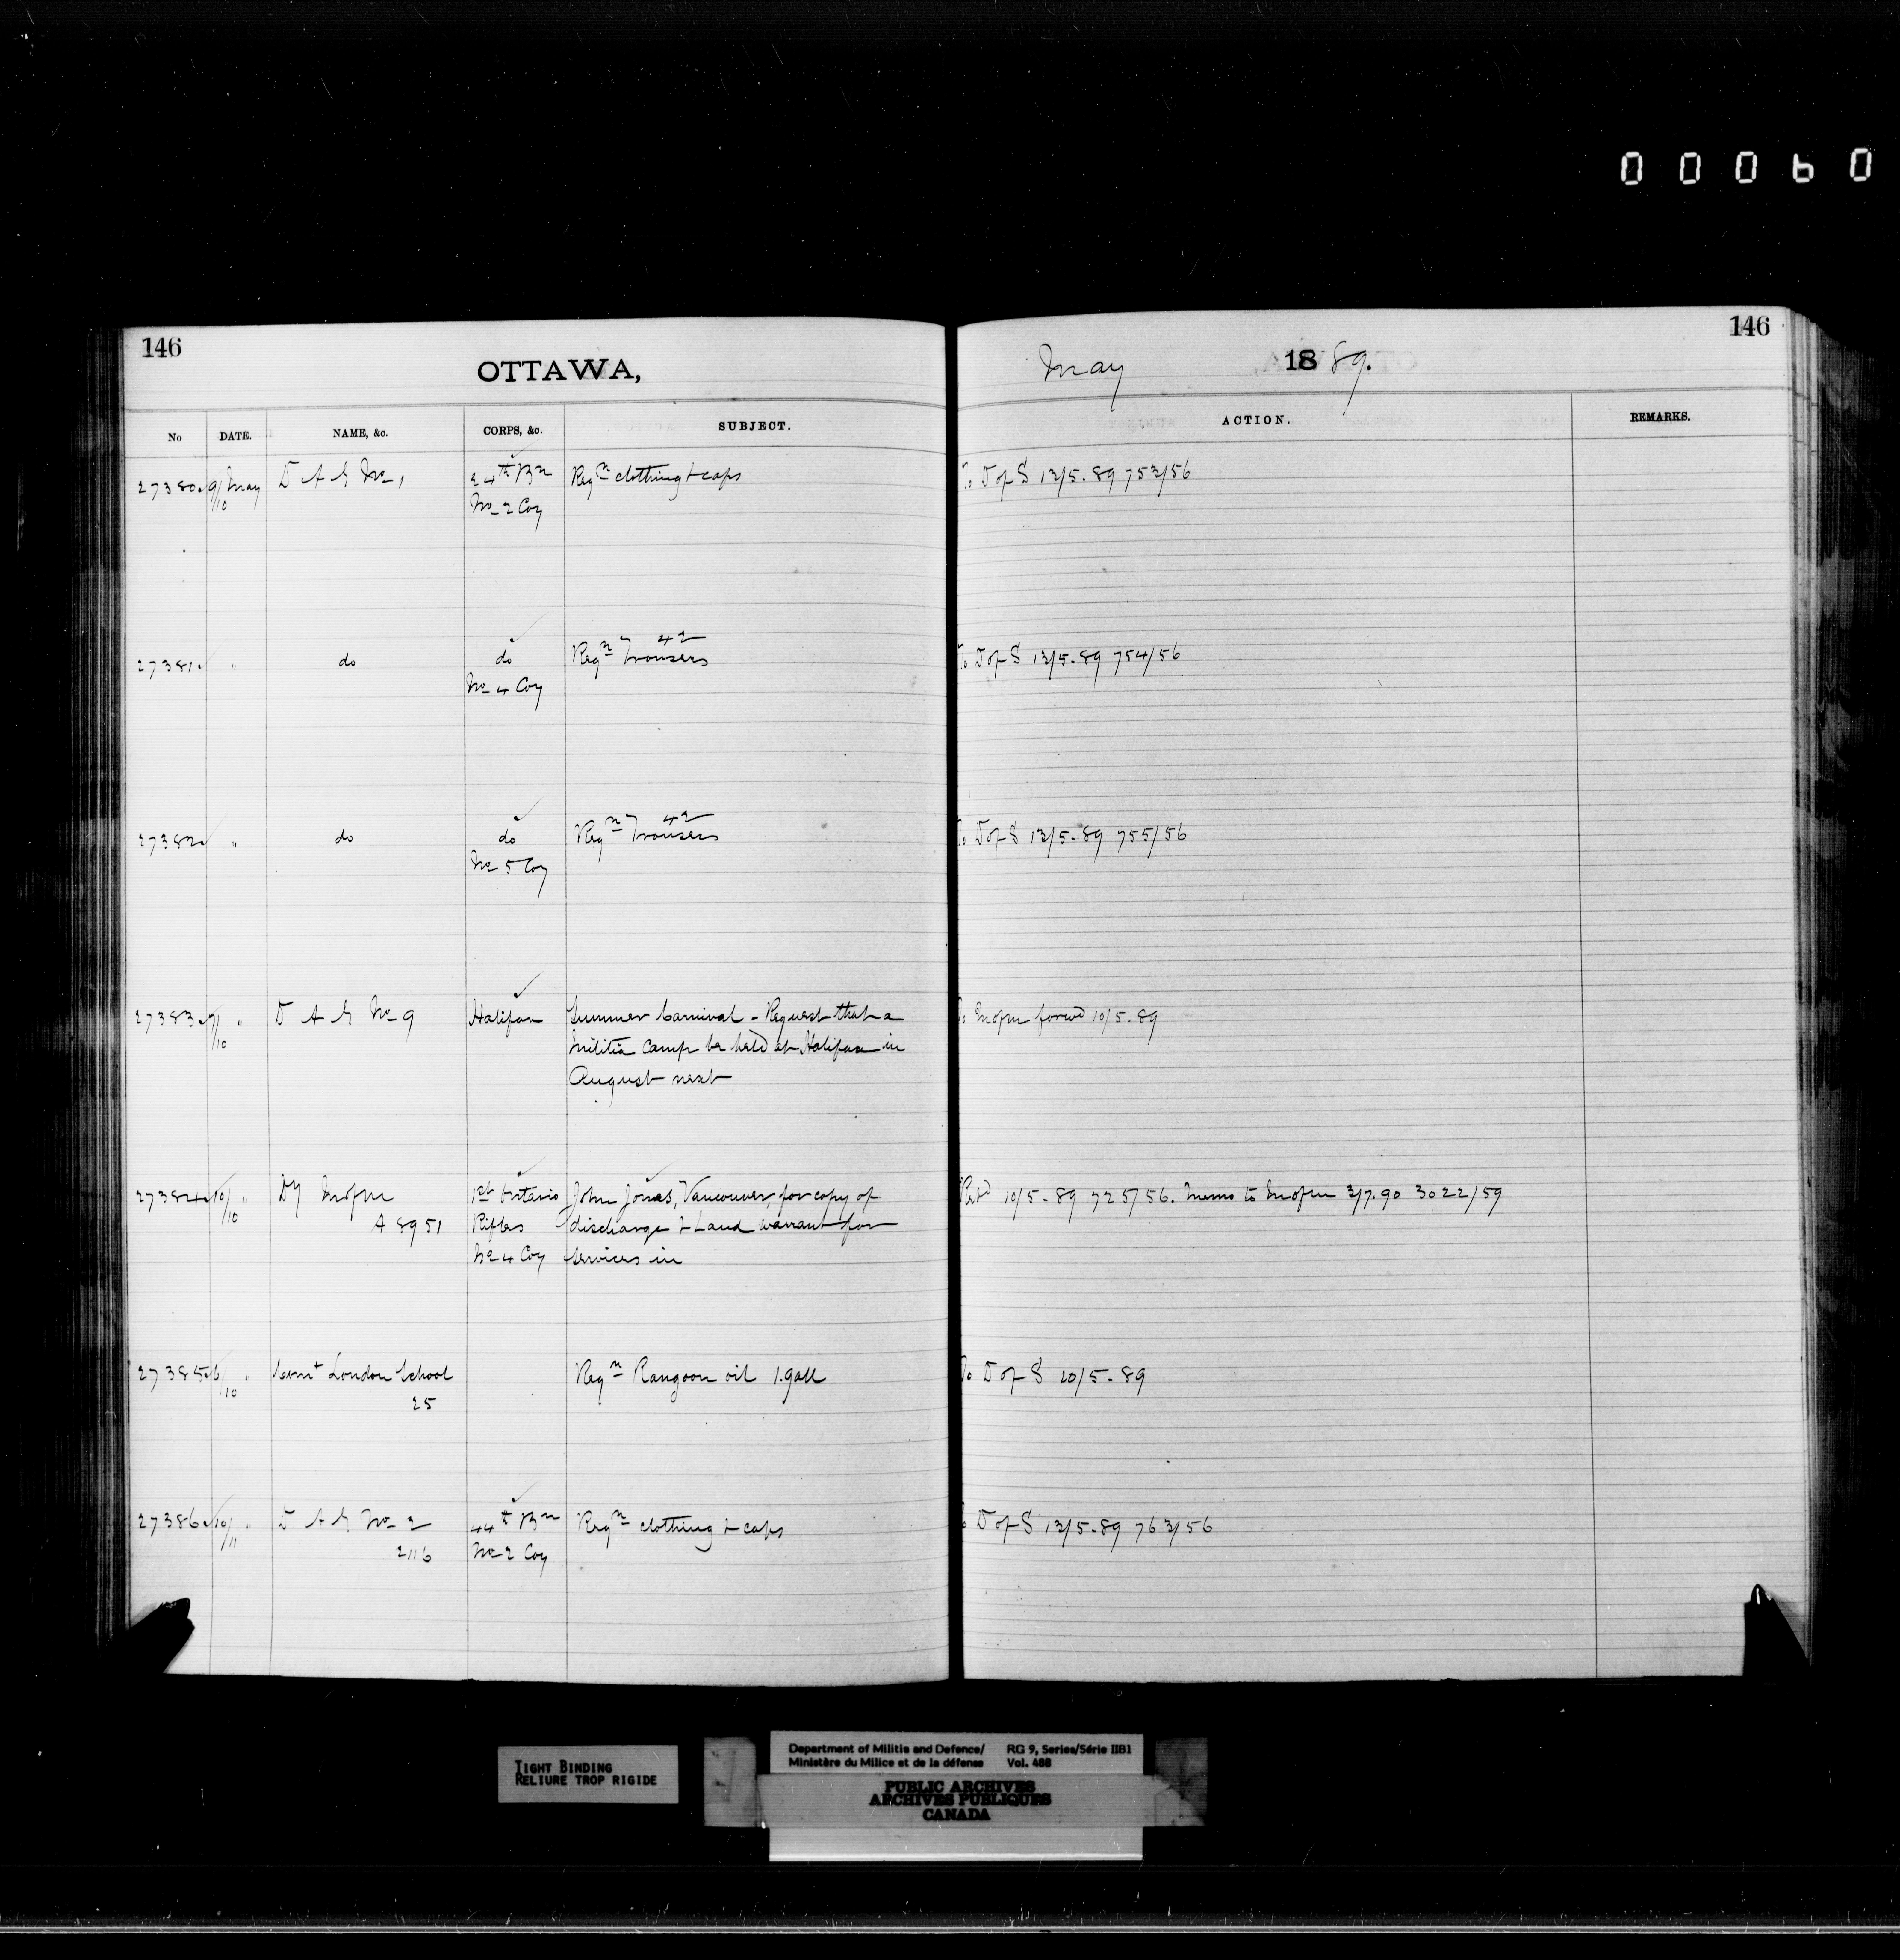 00060
146
OTTAWA,
May 1889.
146
No DATE. NAME, &c. CORPS, &c. SUBJECT. ACTION. REMARKS.
27380 9/10 May D A G No 1 24th Bn Reqn clothing & caps To D of S 13/5.89 753/56
No 2 Coy
27381 " do do Reqn Trousers 42 To D of S 13/5.89 754/56
No 4 Coy
27382 " do do Reqn Trousers 42 To D of S 13/5.89 755/56
No 5 Coy
27383 7/10 " D A G No 9 Halifax Summer Carnival - Request that a To M of M forwd 10/5.89
Militia Camp be held at Halifax in
August next
27384 10/10 " Dy M of M 1st Ontario John Jones, Vancouver, for copy of Retd 10/5.89 725/56. Memo to M of M 3/7.90 3022/59
A 8951 Rifles discharge & Land warrant for
No 4 Coy services in
27385 6/10 " Comt London School Reqn Rangoon oil 1. gall To D of S 20/5.89
25
27386 10/11 " D A G No 2 44th Bn Reqn clothing & caps To D of S 13/5.89 763/56
2116 No 2 Coy
TIGHT BINDING
RELIURE TROP RIGIDE
Department of Militia and Defence/ RG 9, Series/Série IIB1
Ministère du Milice et de la défense Vol. 488
PUBLIC ARCHIVES
ARCHIVES PUBLIQUES
CANADA